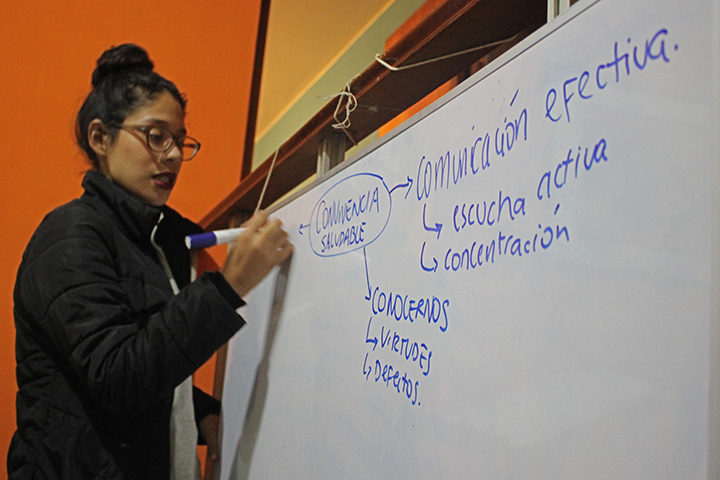 CONVIVENCIA
SALUDABLE
Comunicación efectiva.
escucha activa
concentración
CONOCERNOS
VIRTUDES
Defectos.